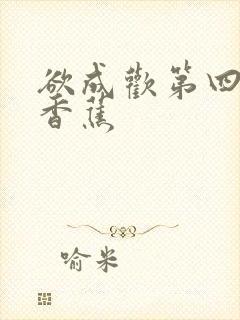 欲成歡第四
香蕉
喻米